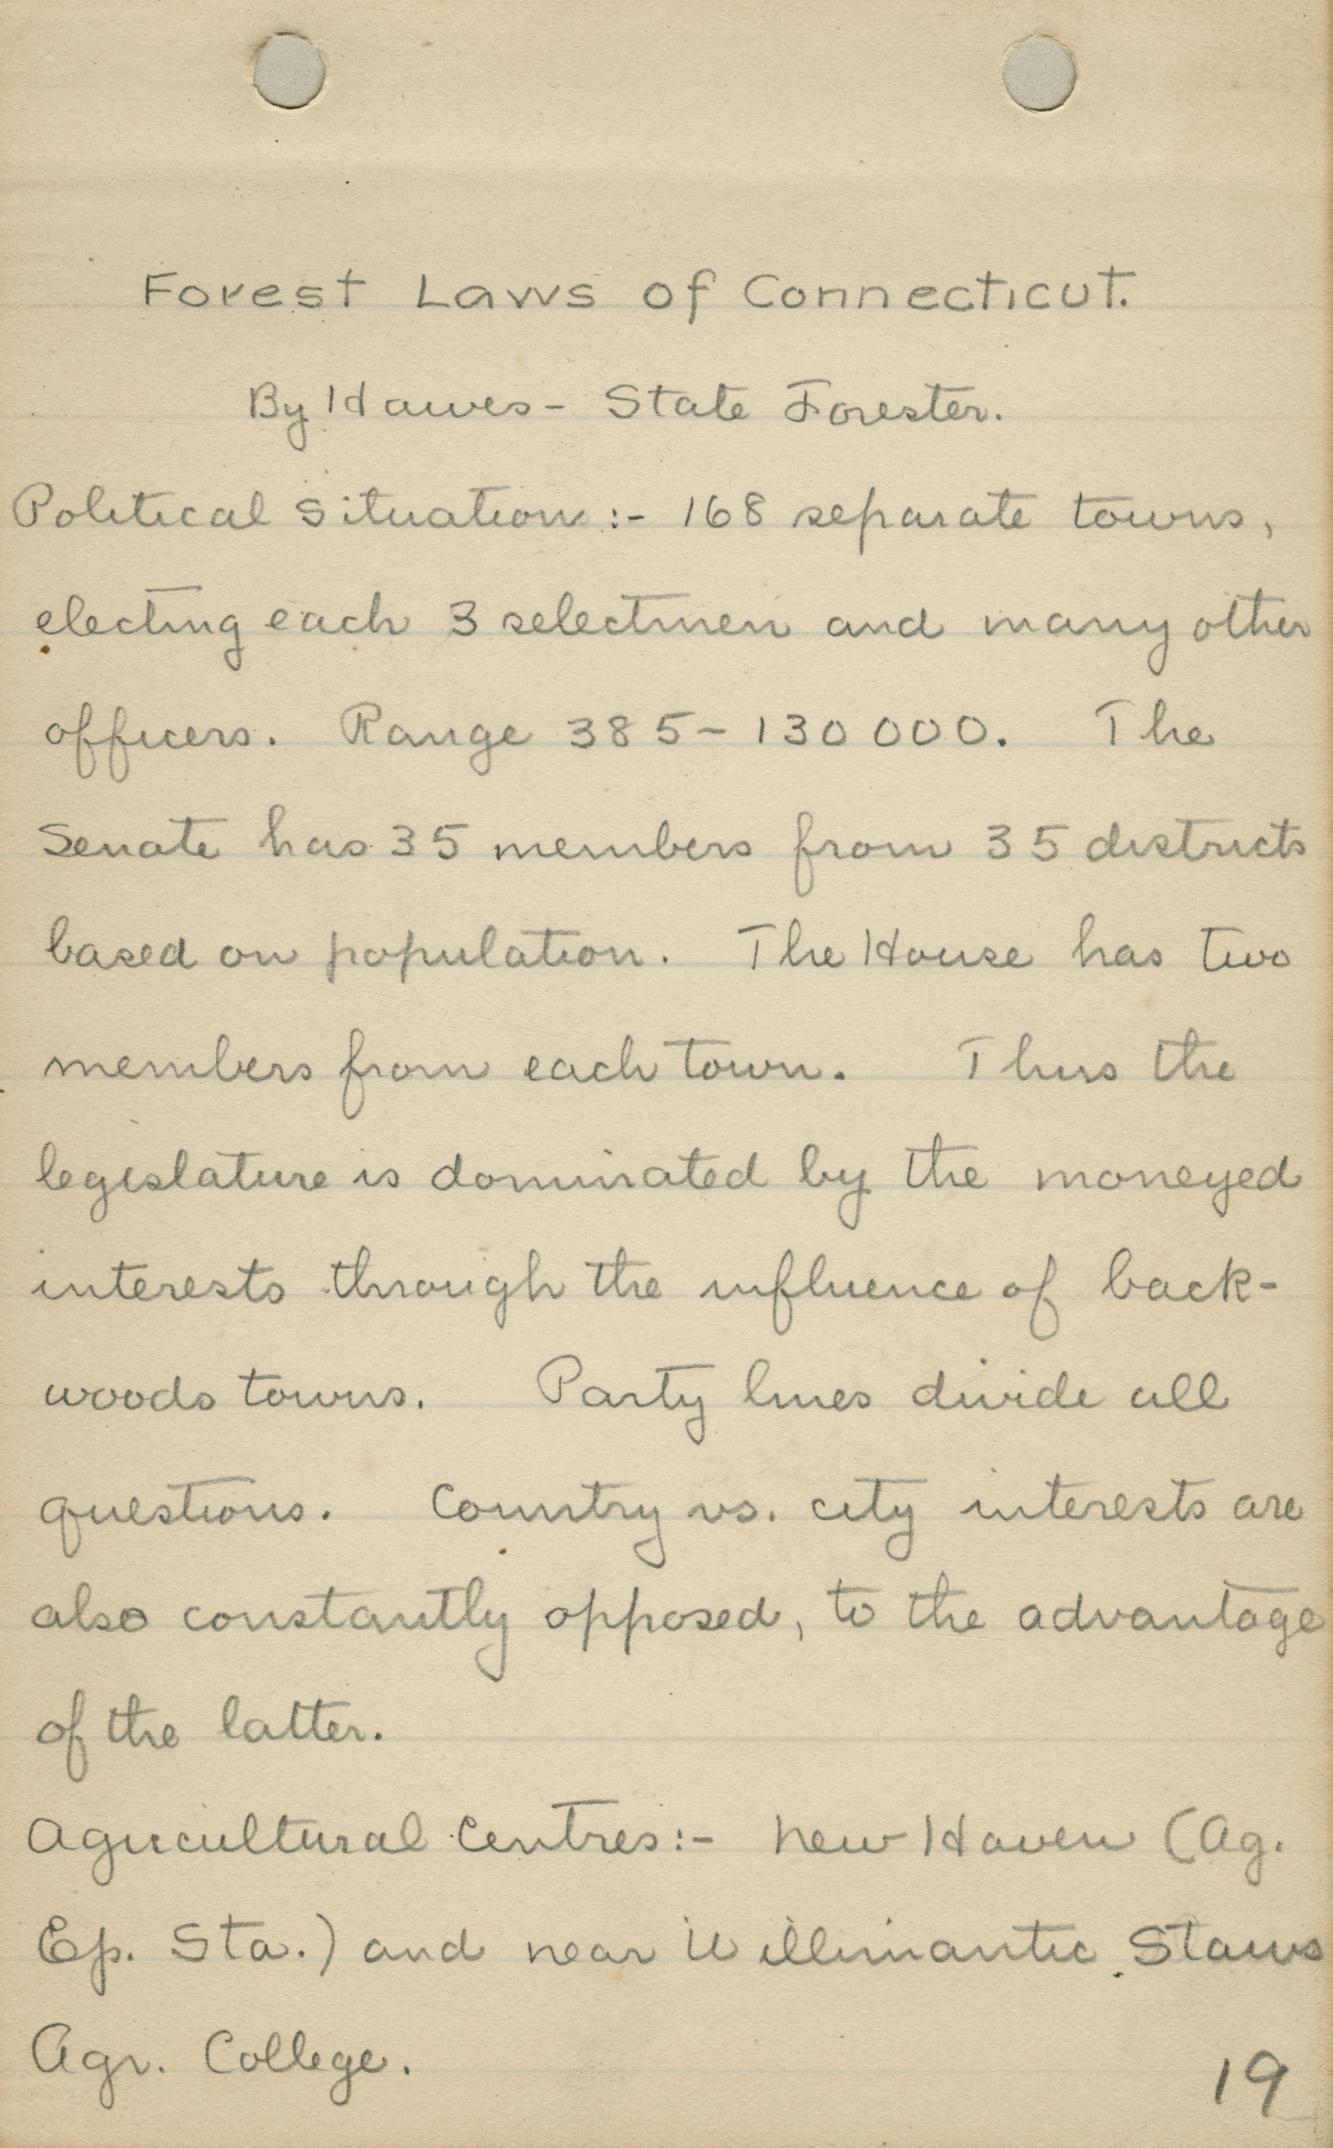 Forest Laws of Connecticut.
By Hawes - State Forester.
Political Situation :- 168 separate towns,
electing each 3 selectmen and many other
officers. Range 385 - 130 000. The
Senate has 35 members from 35 districts
based on population. The House has two
members from each town. Thus the
legislature is dominated by the moneyed
interests through the influence of back-
woods towns. Party lines divide all
questions. Country vs. city interests are
also constantly opposed, to the advantage
of the latter.
Agricultural Centres :- New Haven (Ag.
Ep. Sta.) and near Willimantic Staws
Agr. College.
19